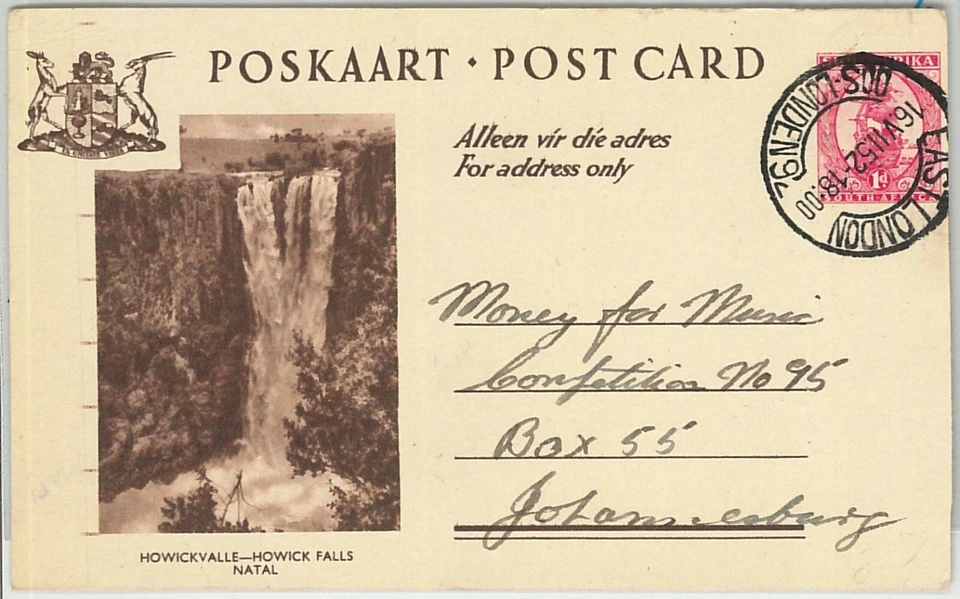 POSKAART · POST CARD
Alleen vir die adres
For address only
OOS-LONDEN 9
16 VII 52-18 00
EAST LONDON
1d
SOUTH AFRICA
Money for Music
Competition No 95
Box 55
Johannesburg
HOWICKVALLE—HOWICK FALLS
NATAL